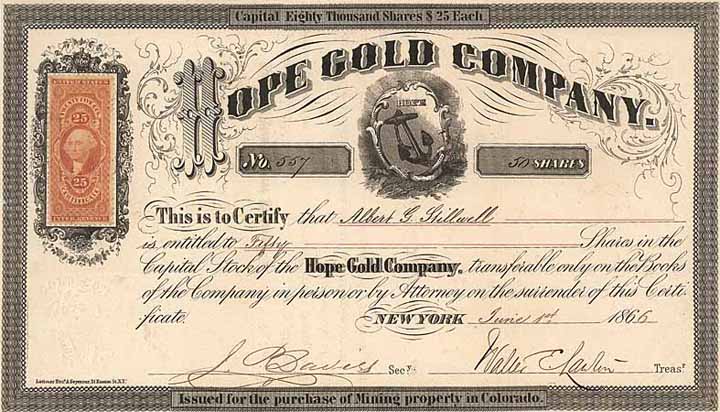 Capital Eighty Thousand Shares $25 Each
HOPE GOLD COMPANY.
UNITED STATES
25
25
CERTIFICATE
INTER. REVENUE
HOPE
No. 557
50 SHARES
This is to Certify that Albert G. Stillwell
is entitled to Fifty Shares in the
Capital Stock of the Hope Gold Company, transferable only on the Books
of the Company, in person or by Attorney on the surrender of this Certi-
ficate.
NEW YORK June 1st 1866
J. P. Davies Secy. Walter E. Treasr
Latimer Bros & Seymour, 21 Nassau St. N.Y.
Issued for the purchase of Mining property in Colorado.